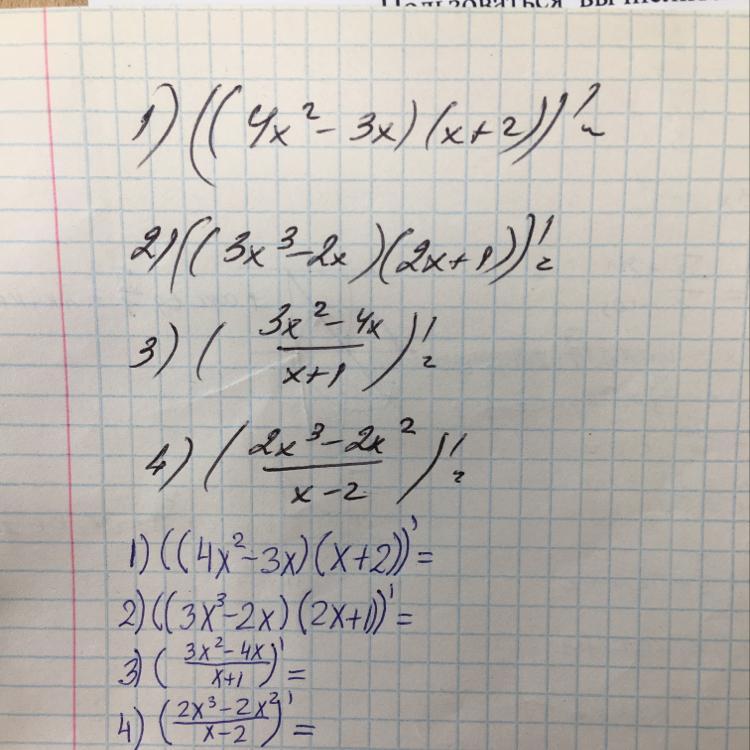 Пользоваться
1) ((4x² - 3x)(x+2))' =
2) ((3x³-2x)(2x+1))' =
3) ( (3x²-4x)/(x+1) )' =
4) ( (2x³-2x²)/(x-2) )' =
1) ((4x²-3x)(x+2))' =
2) ((3x³-2x)(2x+1))' =
3) ( (3x²-4x)/(x+1) )' =
4) ( (2x³-2x²)/(x-2) )' =